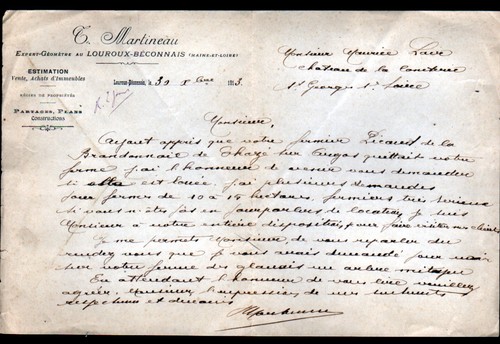 T. Martineau
Expert-Géomètre au LOUROUX-BÉCONNAIS (MAINE-ET-LOIRE)
ESTIMATION
Vente, Achats d'Immeubles
RÉGIE DE PROPRIÉTÉS
Partages, Plans
Constructions
Louroux-Béconnais, le 30 Xbre 1913.
Monsieur Maurice
château de la
St Georges s/ Loire
Monsieur,
Ayant appris que votre fermier de la
de sur quittait votre
ferme, j'ai l'honneur de venir vous demander
si elle est louée, j'ai plusieurs demandes
pour fermes de 10 à 15 hectares, fermiers très sérieux
si vous n'êtes pas en pourparlers de location, je suis
Monsieur à votre entière disposition, pour faire visiter
Je me permets Monsieur, de vous reparler du
rendez vous que je vous avais demandé pour
cher votre ferme des un arbre mitoyen
En attendant l'honneur de vous lire veuillez
agréer, Monsieur l'expression de mes sentiments
respectueux et dévoués
Martineau